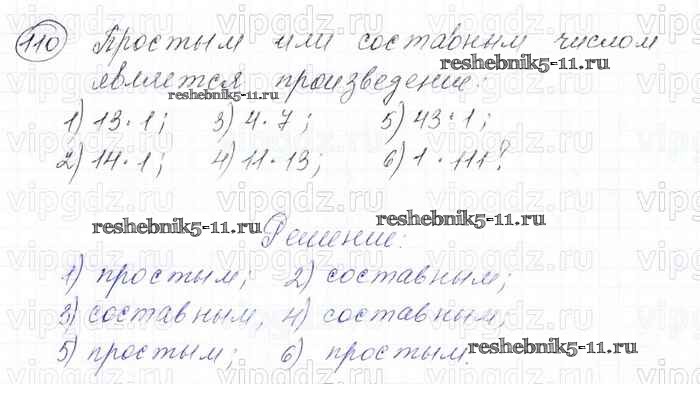 110 Простым или составным числом
является произведение:
1) 13·1; 3) 4·7; 5) 43·1;
2) 14·1; 4) 11·13; 6) 1·111?
Решение:
1) простым; 2) составным;
3) составным; 4) составным;
5) простым; 6) простым.
vipgdz.ru
reshebnik5-11.ru
reshebnik5-11.ru
reshebnik5-11.ru
reshebnik5-11.ru
reshebnik5-11.ru